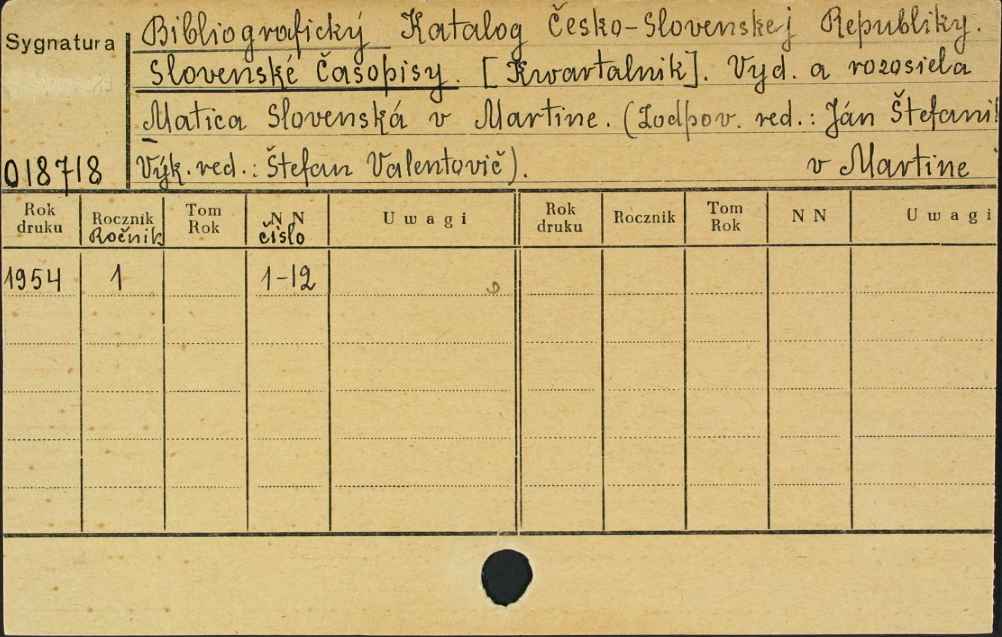 Sygnatura
Bibliografický Katalog Česko-Slovenskej Republiky.
Slovenské Časopisy. [Kwartalnik]. Vyd. a rozosiela
Matica Slovenská v Martine. (Zodpov. red.: Ján Štefanik
018718
Výk. red.: Štefan Valentovič). v Martine
Rok druku Rocznik Tom Rok N N Uwagi Rok druku Rocznik Tom Rok N N Uwagi
Ročnik čislo
1954 1 1-12